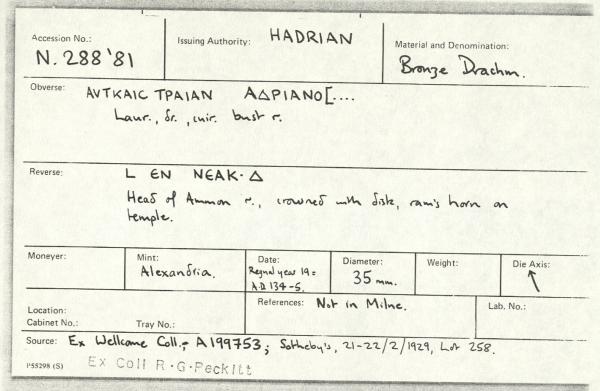 Accession No.: N.288'81
Issuing Authority: HADRIAN
Material and Denomination: Bronze Drachm.
Obverse: ΑΥΤΚΑΙC ΤΡΑΙΑΝ ΑΔΡΙΑΝΟ[....
Laur., dr., cuir. bust r.
Reverse: L ΕΝ ΝΕΑΚ·Δ
Head of Ammon r., crowned with disk, ram's horn on
temple.
Moneyer:
Mint: Alexandria.
Date: Regnal year 19 =
A.D 134-5.
Diameter: 35 mm.
Weight:
Die Axis: ↖
Location:
Cabinet No.: Tray No.:
References: Not in Milne.
Lab. No.:
Source: Ex Wellcome Coll.; A199753; Sotheby's, 21-22/2/1929, Lot 258.
P55298 (S) Ex Coll R·G·Peckitt